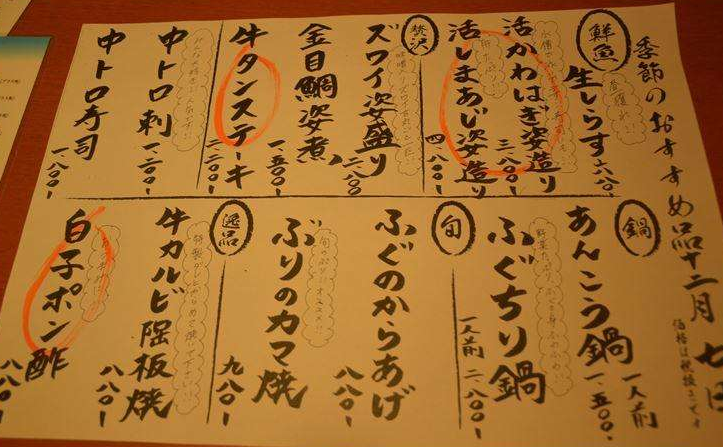 季節のおすすめ品 十二月 七日
価格は税抜きです
鮮魚
生しらす 六八〇、
活かわはぎ姿造り 三、八〇〇ー
活しまあじ姿造り 四、八〇〇ー
贅沢
ズワイ姿盛り 二、二八〇
金目鯛姿煮 一、五〇〇ー
牛タンステーキ 二、二〇〇ー
中トロ刺 一、二〇〇ー
中トロ寿司 一、八〇〇ー
鍋
あんこう鍋 一人前 一、五〇〇、
ふぐちり鍋 一人前 二、八〇〇ー
旬
ふぐのからあげ 八八〇ー
ぶりのカマ焼 九八〇ー
逸品
牛カルビ陶板焼 八八〇ー
白子ポン酢 八八〇ー